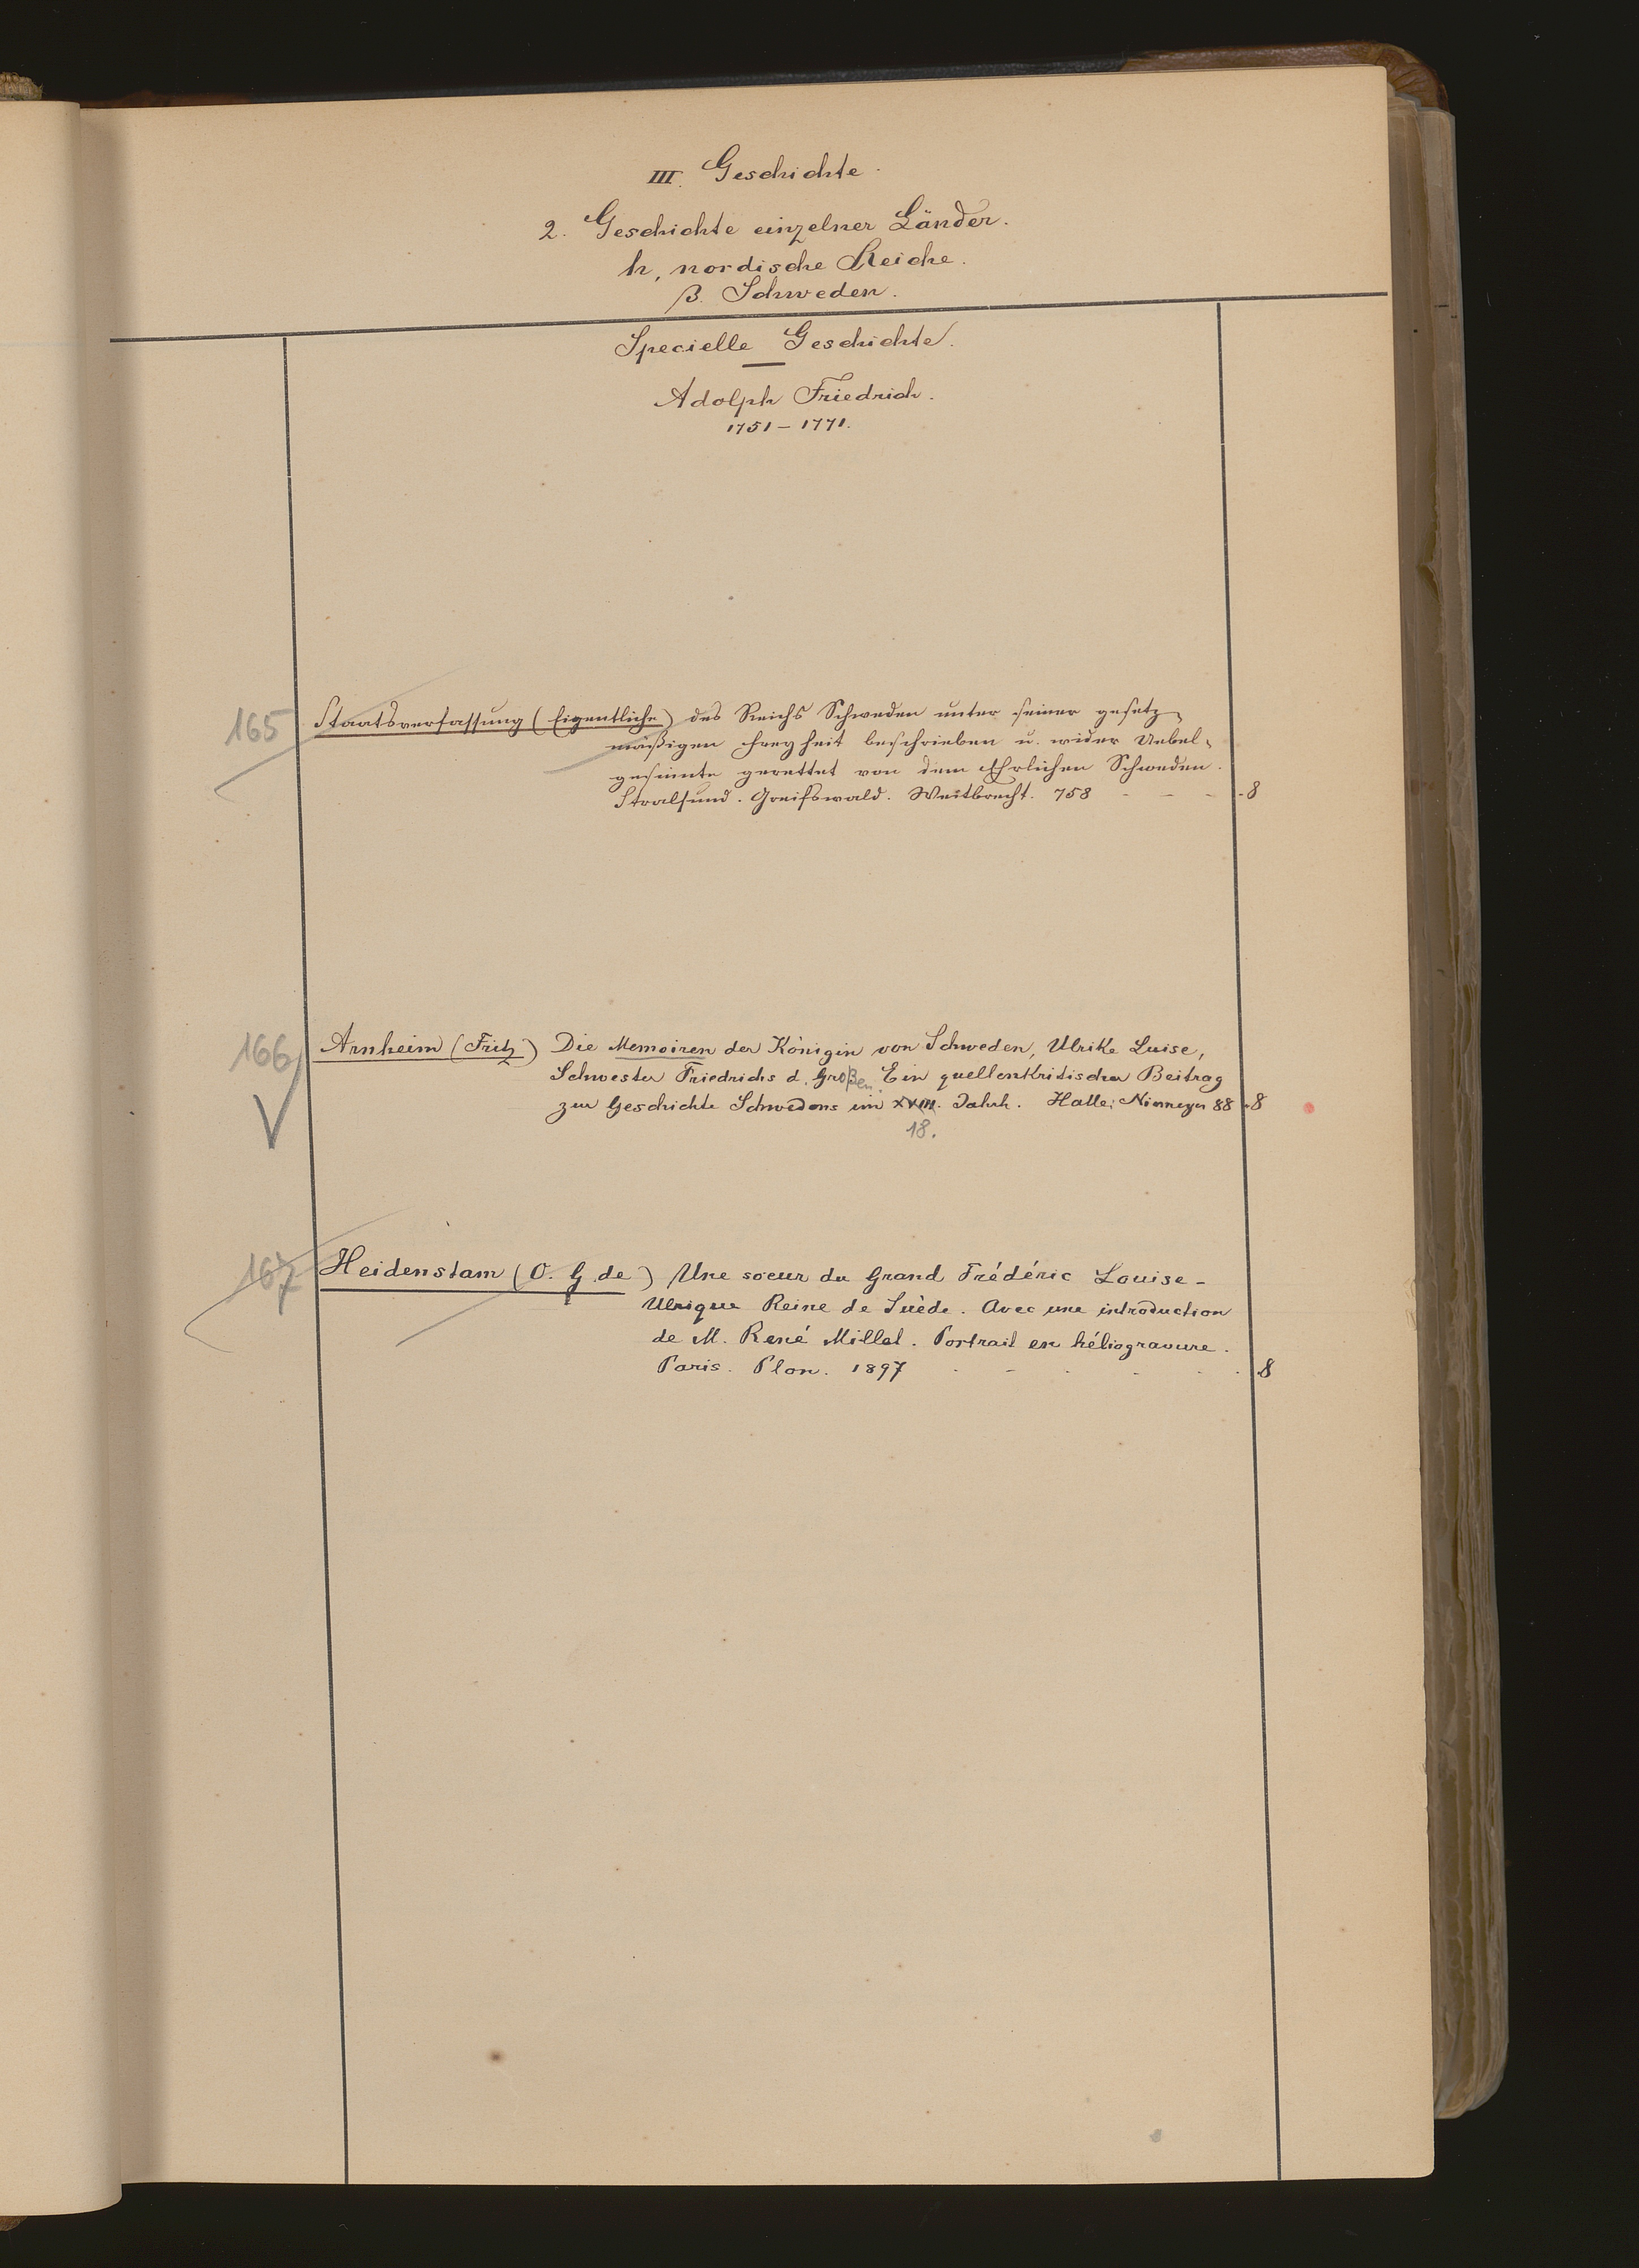 III. Geschichte.
2. Geschichte einzelner Länder.
h, nordische Reiche.
β. Schweden.
Specielle Geschichte.
Adolph Friedrich.
1751 – 1771.
165 Staatsverfassung (Eigentliche) des Reichs Schweden unter seiner gesetz-
mäßigen Freyheit beschrieben u. wider Uebel-
gesinnte gerettet von dem Ehrlichen Schweden.
Stralsund. Greifswald. Weitbrecht. 758 - - - - 8
166 Arnheim (Fritz) Die Memoiren der Königin von Schweden, Ulrike Luise,
Schwester Friedrichs d. Großen. Ein quellenkritischer Beitrag
zur Geschichte Schwedens im XVIII. Jahrh. Halle: Niemeyer 88 . 8
18.
167 Heidenstam (O. G. de) Une soeur du Grand Frédéric Louise-
Ulrique Reine de Suède. Avec une introduction
de M. René Millet. Portrait en héliogravure.
Paris. Plon. 1897 - - - - - - . 8